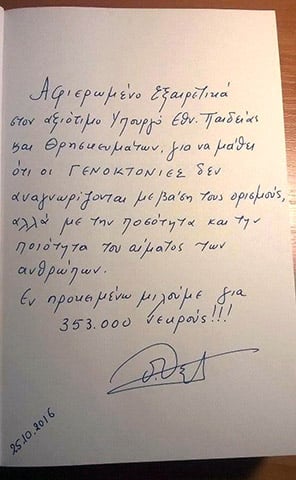 Αφιερωμένο Εξαιρετικά
στον αξιότιμο Υπουργό Εθν. Παιδείας
και Θρησκευμάτων, για να μάθει
ότι οι ΓΕΝΟΚΤΟΝΙΕΣ δεν
αναγνωρίζονται με βάση τους ορισμούς,
αλλά με την ποσότητα και την
ποιότητα του αίματος των
ανθρώπων.
Εν προκειμένω μιλούμε για
353.000 νεκρούς!!!
25.10.2016